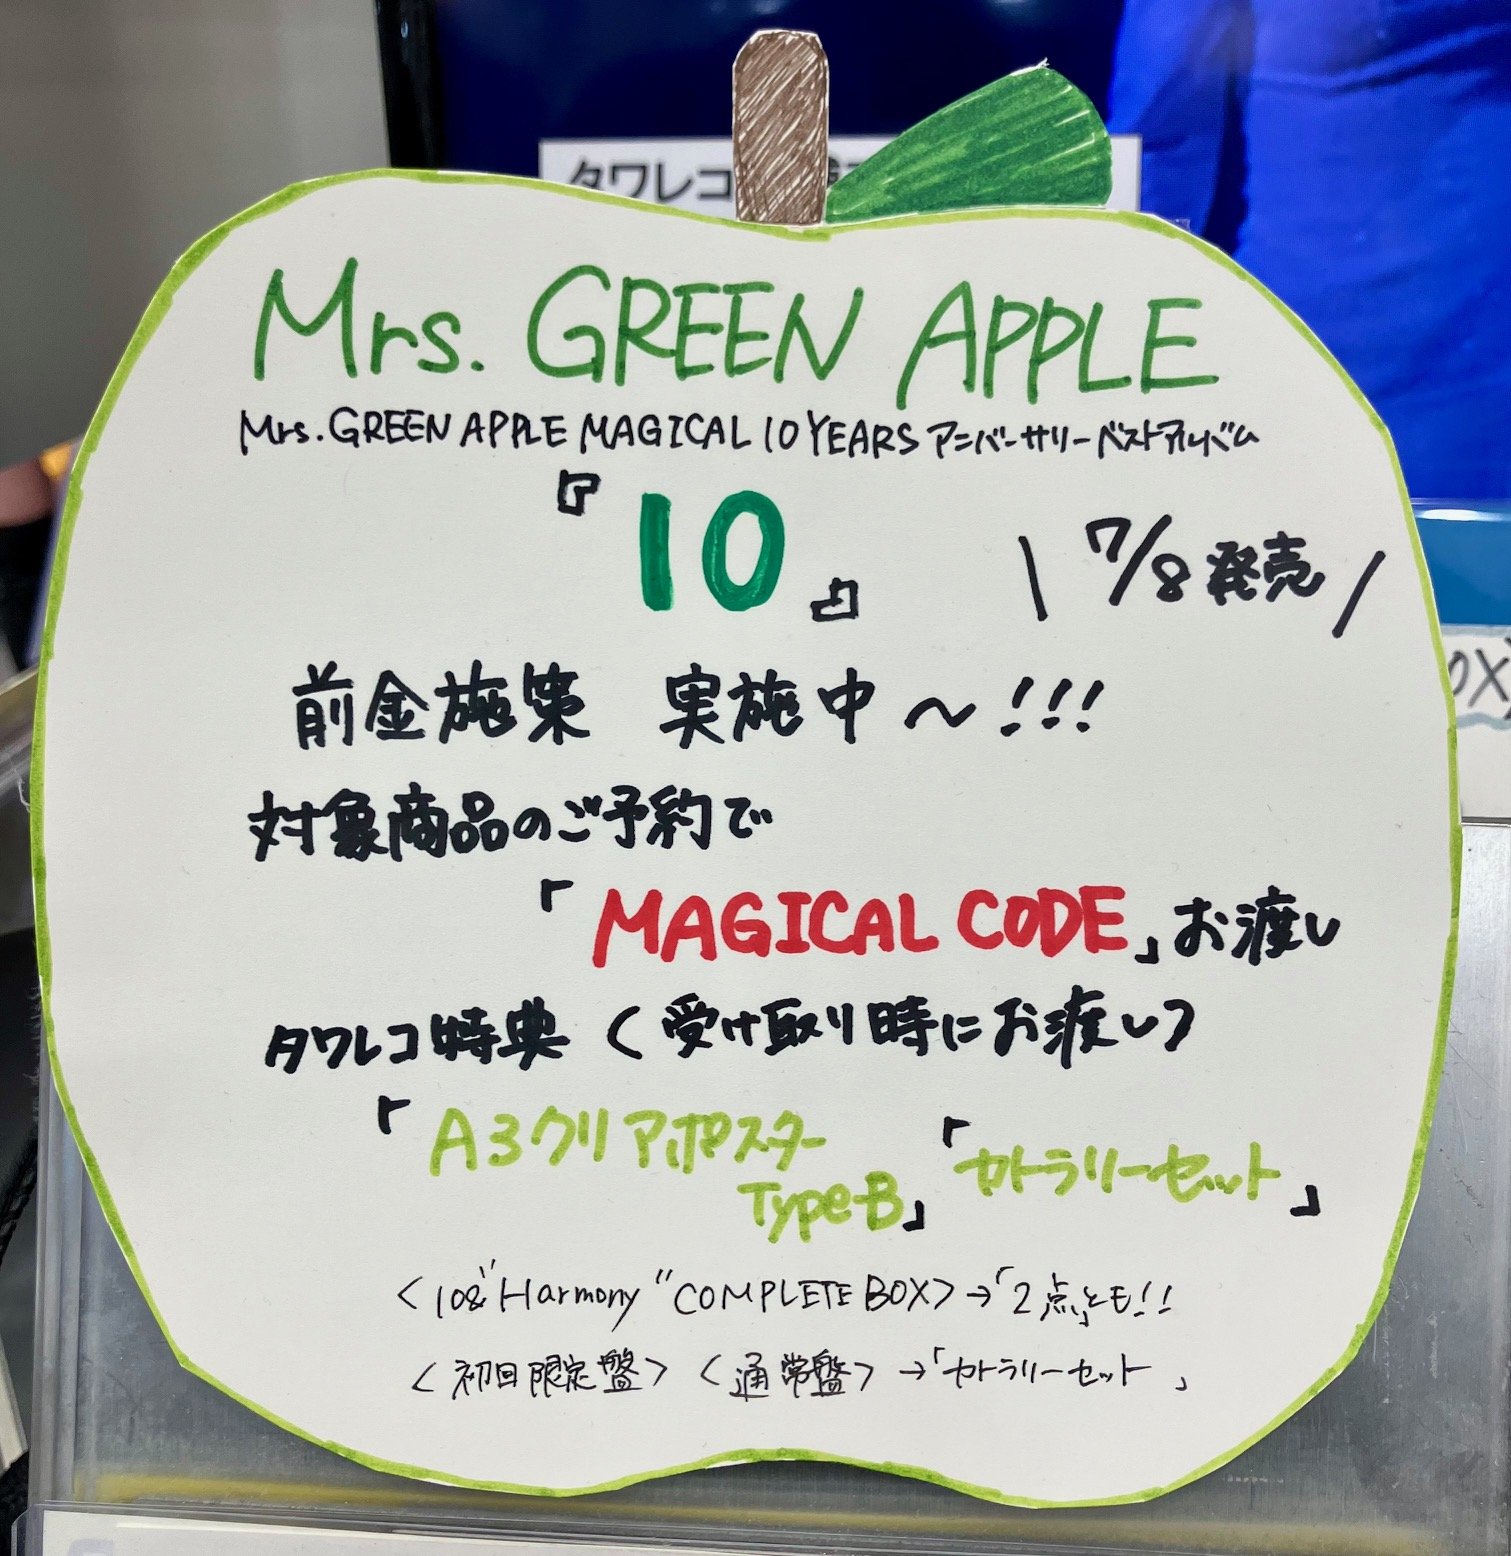 タワレコ
Mrs. GREEN APPLE
Mrs. GREEN APPLE MAGICAL 10 YEARS アニバーサリーベストアルバム
『10』
\ 7/8 発売 /
前金施策 実施中〜!!!
対象商品のご予約で
「MAGICAL CODE」お渡し
タワレコ特典 〈受け取り時にお渡し〉
「A3クリアポスター TypeB」「カトラリーセット」
〈108"Harmony"COMPLETE BOX〉→「2点」とも!!
〈初回限定盤〉〈通常盤〉→「カトラリーセット」
OX〉